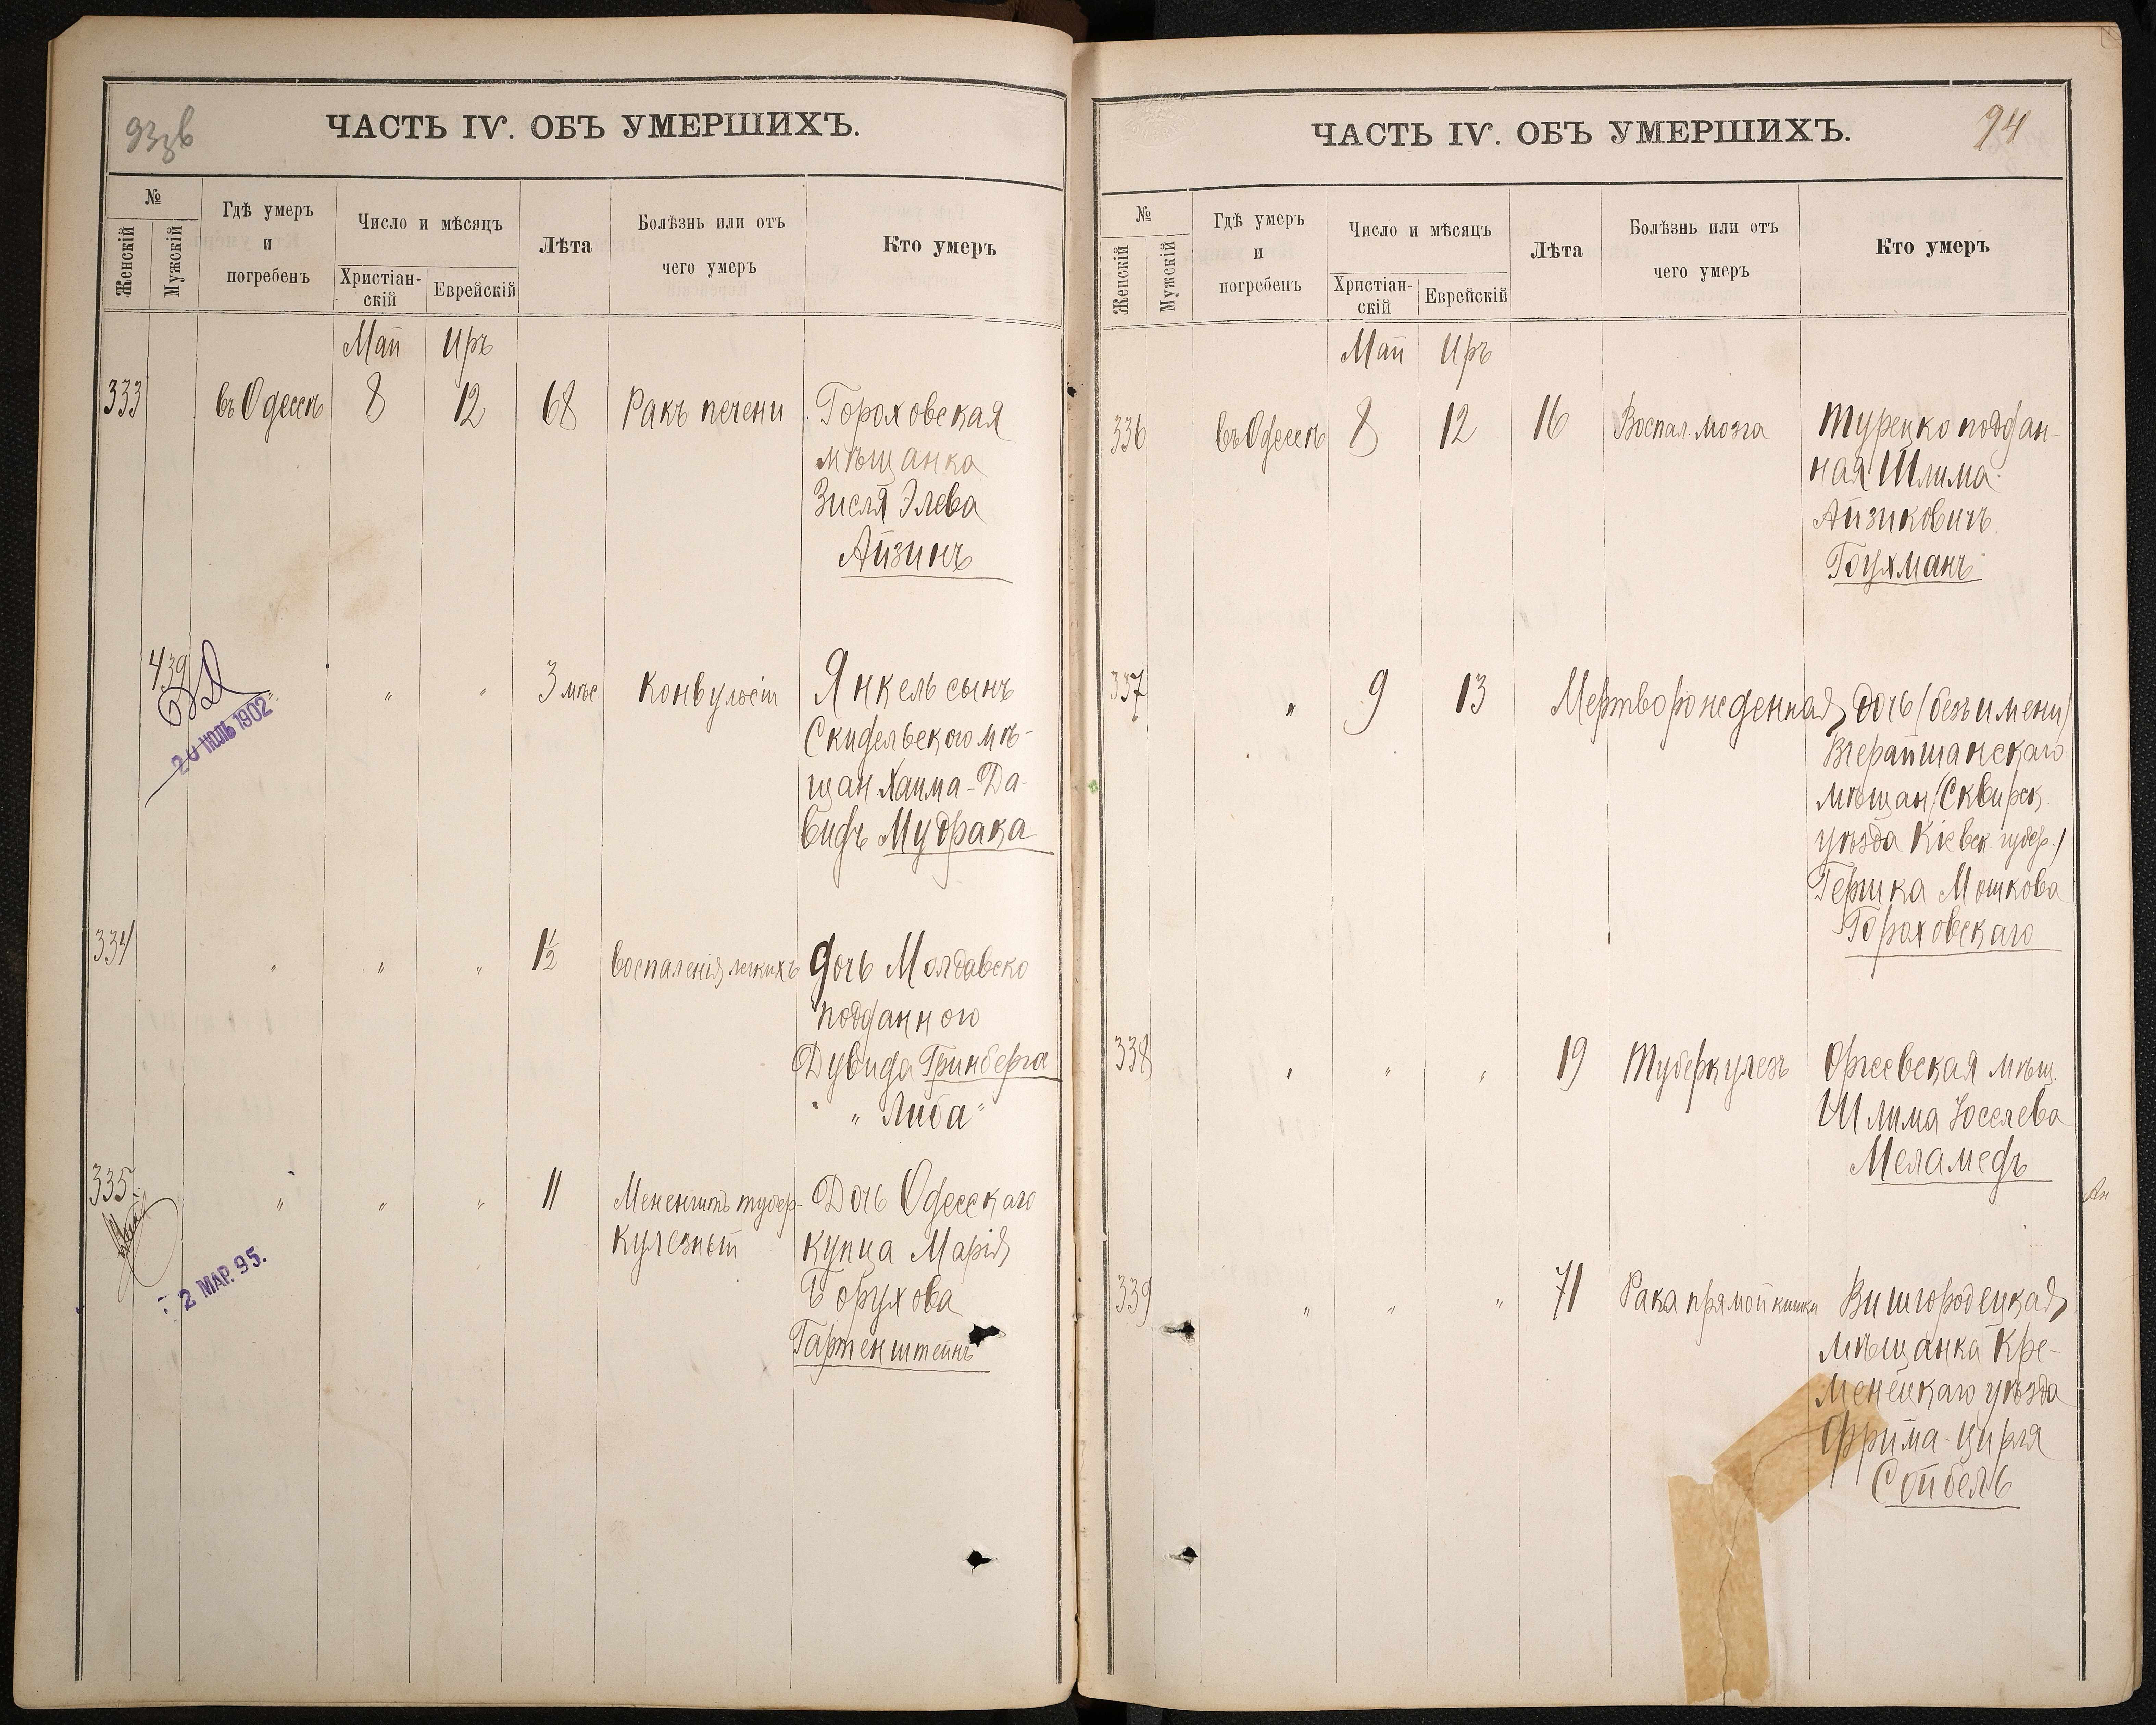 93зв
ЧАСТЬ IV. ОБЪ УМЕРШИХЪ.
№
Женскій
Мужскій
Гдѣ умеръ
и
погребенъ
Число и мѣсяцъ
Христіан-
скій
Еврейскій
Лѣта
Болѣзнь или отъ
чего умеръ
Кто умеръ
Май Иръ
333 въ Одессѣ 8 12 68 Ракъ печени Гороховская
мѣщанка
Зисля Элева
Айзинъ
439 " " " 3 мѣс. Конвульсіи Янкель сынъ
20 ІЮЛЬ 1902
Скидельского мѣ-
щан. Хаима-Да-
видъ Мудрака
334 " " " 1½ Воспаленія легкихъ дочь Молдавско
подданного
Дувида Гринберга
" Либа "
335 " " " 11 Менингитъ тубер- Дочь Одесскаго
кулезный купца Марія
Борухова
2 МАР. 95.
Гартенштейнъ
ЧАСТЬ IV. ОБЪ УМЕРШИХЪ.
94
№
Женскій
Мужскій
Гдѣ умеръ
и
погребенъ
Число и мѣсяцъ
Христіан-
скій
Еврейскій
Лѣта
Болѣзнь или отъ
чего умеръ
Кто умеръ
Май Иръ
336 въ Одессѣ 8 12 16 Воспал. мозга Турецко поддан-
ная Шлима
Айзиковичъ
Гоухманъ
337 " 9 13 Мертворожденная дочь (безъ имени)
Вчерайшанскаго
мѣщан (Сквирск.
уѣзда Кіевск. губер.)
Гершка Мошкова
Гороховскаго
338 " " " 19 Туберкулезъ Оргеевская мѣщ.
Шлима Іоселева
Меламедъ
339 " " " 71 Рака прямой кишки Вишгородецкая
мѣщанка Кре-
менецкаго уѣзда
Фрима-Цирля
Сойбель